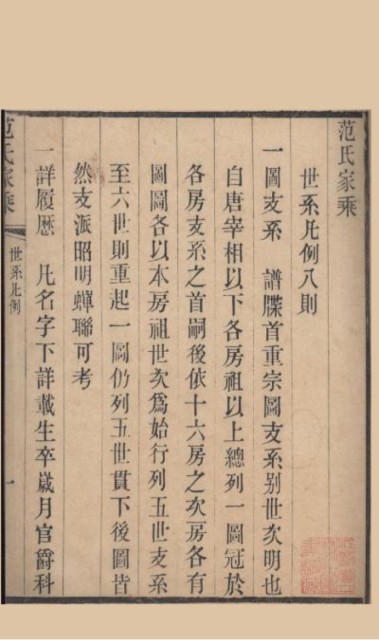 范氏家乘
世系凡例八則
一圖支系 譜牒首重宗圖支系别世次明也
自唐宰相以下各房祖以上總列一圖冠於
各房支系之首嗣後依十六房之次房各有
圖圖各以本房祖世次爲始行列五世支系
至六世則重起一圖仍列五世貫下後圖皆
然支派昭明蟬聯可考
一詳履歷 凡名字下詳載生卒歲月官爵科
范氏家乘
世系凡例
一